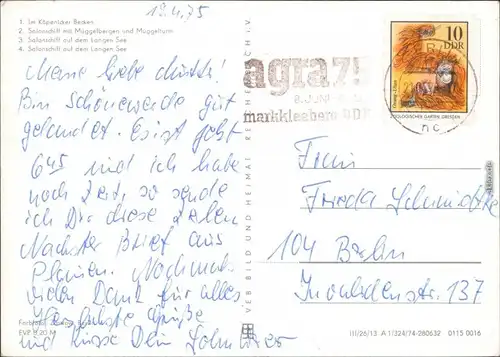 12.4.75
1. Im Köpenicker Becken
2. Salonschiff mit Müggelbergen und Müggelturm
3. Salonschiff auf dem Langen See
4. Salonschiff auf dem Langen See
Meine liebe
Bin Schöneweide gut
gelandet. Es ist jetzt
6 45 und ich habe
noch Zeit, so sende
ich Dir diese Zeilen
Nächster Brief aus
Plauen. Nochmals
vielen Dank für alles
Herzlichste Grüße
und Küsse Dein
EVP 0,20 M
VEB BILD UND HEIMAT REICHENBACH I. V.
agra 75
markkleeberg DDR
10
DDR
Orang-Utan
ZOOLOGISCHER GARTEN DRESDEN
Frau
Frieda Schmidtke
104 Berlin
Invalidenstr. 137
III/26/13 A 1/324/74-280632 0115 0016